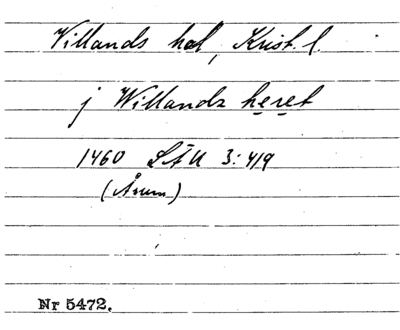 Villands hd, Krist. l.
j Willandz heret
1460 LÄU 3:419
(Årum)
Nr 5472.